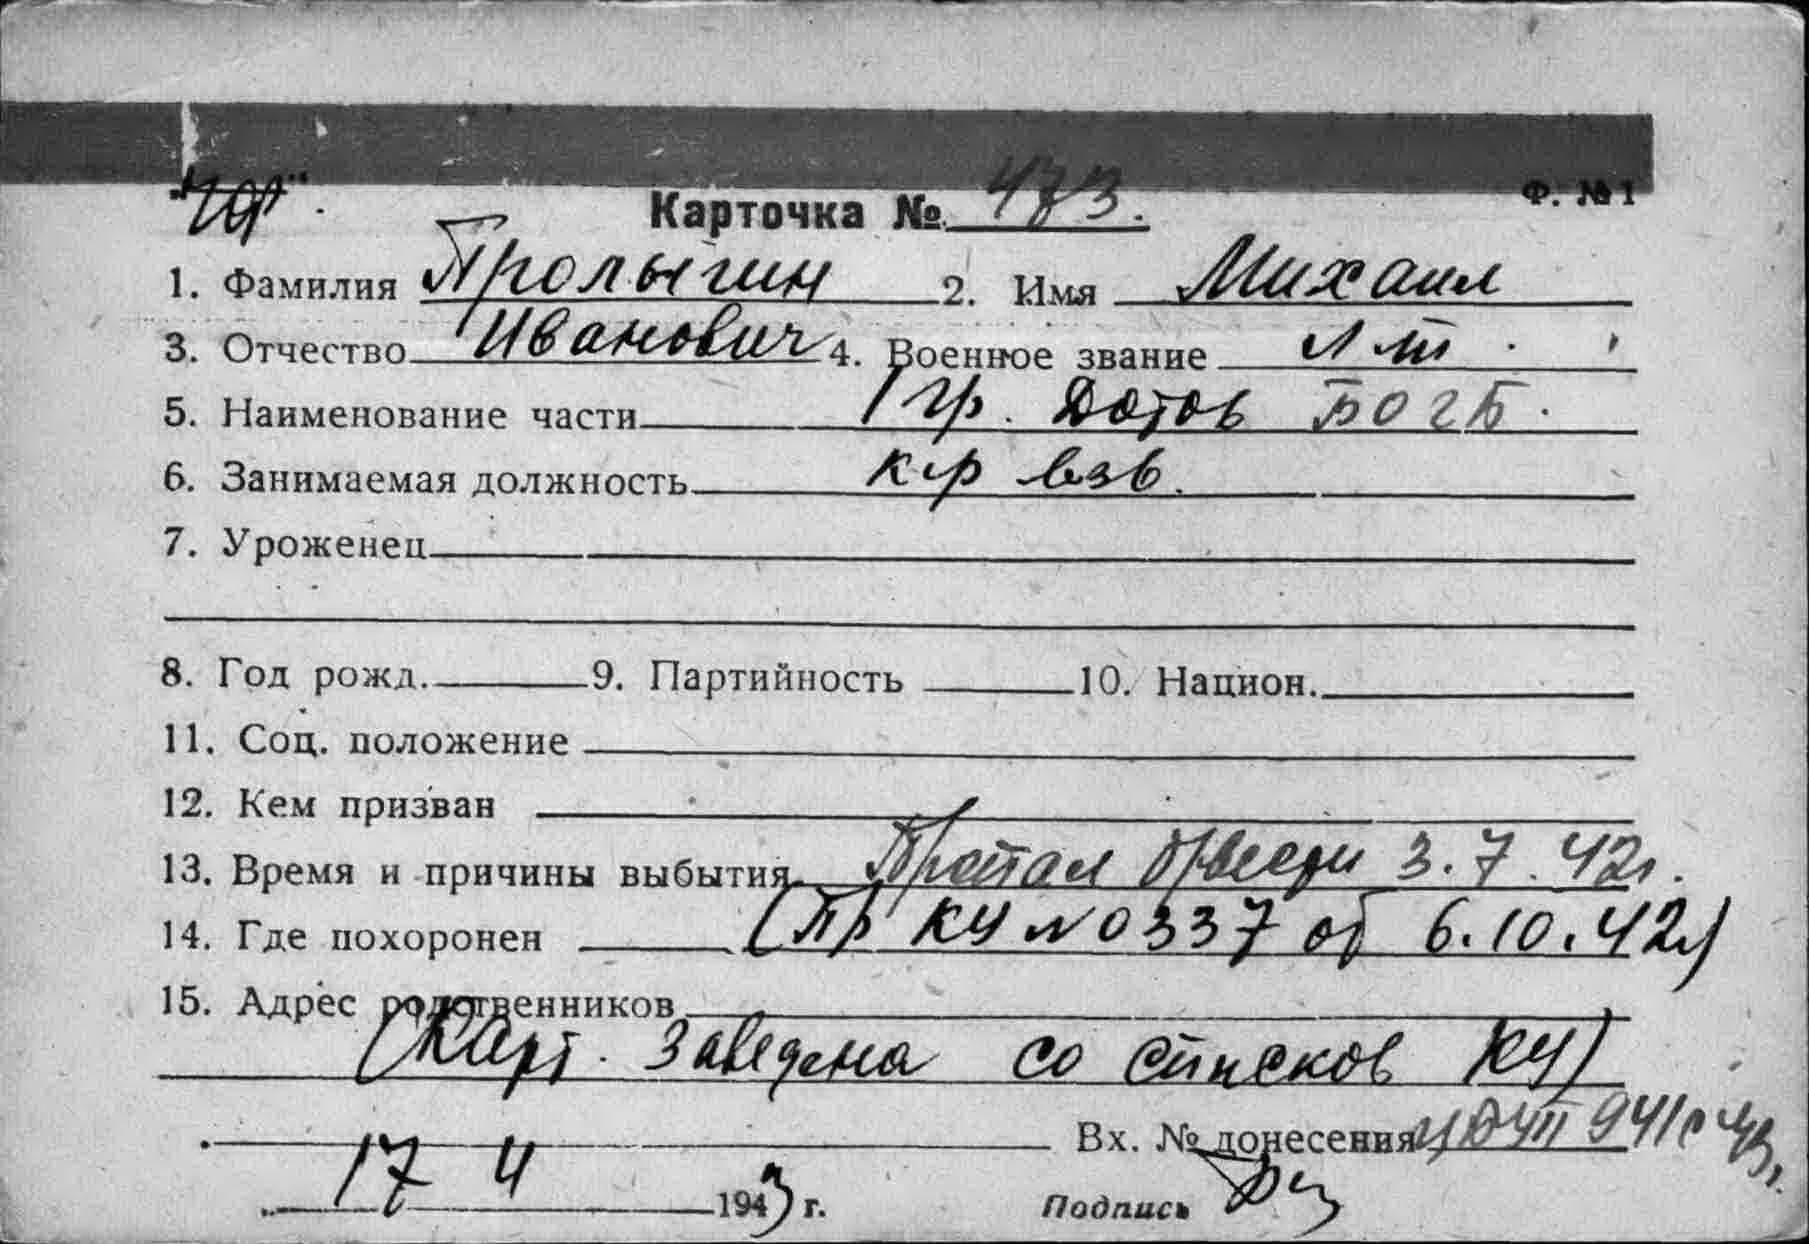 "ЧФ".
Ф. №1
Карточка № 473.
1. Фамилия Пролыгин 2. Имя Михаил
3. Отчество Иванович 4. Военное звание Л-т
5. Наименование части 1 гр. Дотов БО ГБ.
6. Занимаемая должность к-р взв.
7. Уроженец
8. Год рожд. 9. Партийность 10. Национ.
11. Соц. положение
12. Кем призван
13. Время и причины выбытия Пропал б/вести 3.7.42г.
14. Где похоронен (Пр КУ № 0337 от 6.10.42г)
15. Адрес родственников
(Карт. заведена со списков КУ)
Вх. № донесения
17 4 1943 г. Подпись